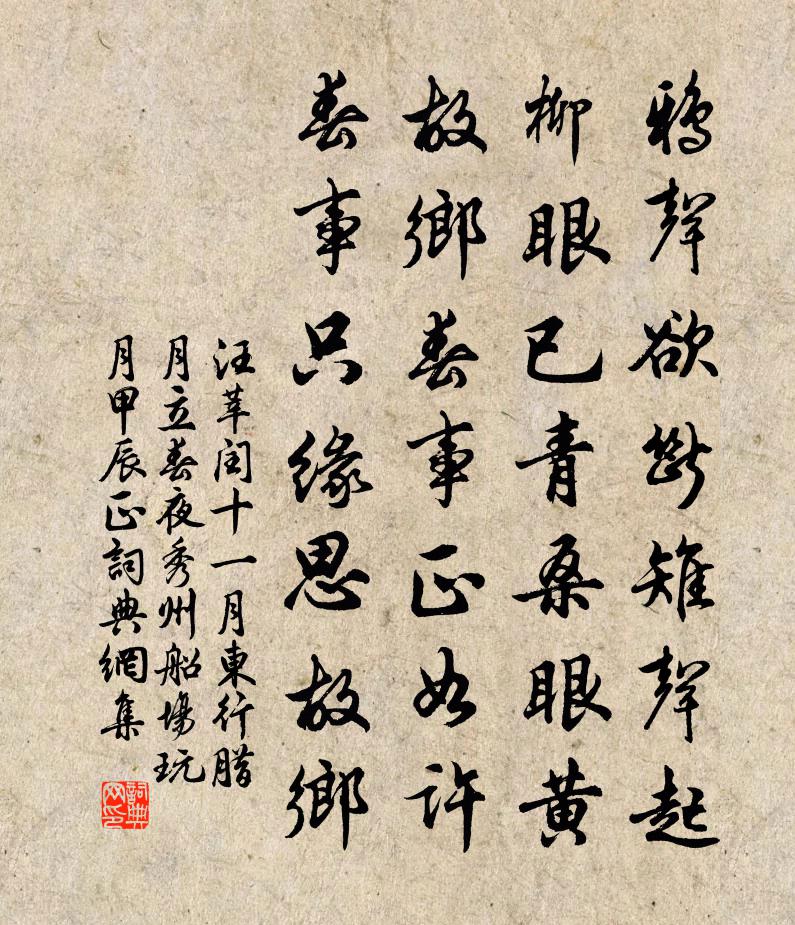 鴉聲欲斷雉聲起
柳眼已青桑眼黃
故鄉春事正如許
春事只緣思故鄉
汪莘閏十一月東行腊
月立春夜秀州船場玩
月甲辰正詞典網集
詞典
网印